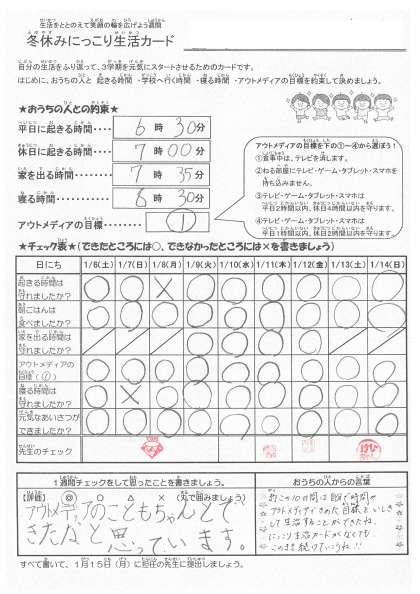 生活をととのえて笑顔の輪を広げよう週間
冬休みにっこり生活カード
自分の生活をふり返って、3学期を元気にスタートさせるためのカードです。
はじめに、おうちの人と 起きる時間・学校へ行く時間・寝る時間・アウトメディアの目標を約束して決めましょう。
★おうちの人との約束★
平日に起きる時間・・・・ 6時 30分
休日に起きる時間・・・・ 7時 00分
家を出る時間・・・・ 7時 35分
寝る時間・・・・ 8時 30分
アウトメディアの目標・・・・・ ①
アウトメディアの目標を下の①~④から選ぼう!
①食事中は、テレビを消します。
②ねる部屋にテレビ・ゲーム・タブレット・スマホを
持ち込みません。
③テレビ・ゲーム・タブレット・スマホは
平日2時間以内、休日4時間以内を守ります。
④テレビ・ゲーム・タブレット・スマホは
平日1時間以内、休日2時間以内を守ります。
★チェック表★(できたところには○、できなかったところには×を書きましょう)
日にち 1/6(土) 1/7(日) 1/8(月) 1/9(火) 1/10(水) 1/11(木) 1/12(金) 1/13(土) 1/14(日)
起きる時間は
守れましたか? ○ ○ × ○ ○ ○ ○ ○ ○
朝ごはんは
食べましたか? ○ ○ ○ ○ ○ ○ ○ ○ ○
家を出る時間は
守れましたか?
アウトメディアの
目標(①) ○ ○ ○ ○ ○ ○ ○ ○ ○
寝る時間は
守れましたか? ○ × ○ ○ ○ ○ ○ ○ ○
元気なあいさつが
できましたか? ○ ○ ○ ○ ○ ○ ○ ○ ○
先生のチェック
1週間チェックをして思ったことを書きましょう。
【評価】 ◎ ○ △ × (丸で囲みましょう)
アウトメディアのこともちゃんとで
きたなと思っています。
おうちの人からの言葉
アウトメディアきめた目標をいしき
して生活することができたね。
にっこり生活カードがなくても
このまま続けていこうね!!
すべて書いて、1月15日(月)に担任の先生に提出しましょう。